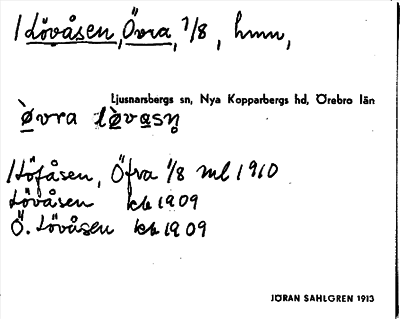 1 Lövåsen, Övra, 1/8, hmn,
Ljusnarsbergs sn, Nya Kopparbergs hd, Örebro län
ø̀vra lø̀vasn̥
1 Löfåsen, Öfra 1/8 ml 1910
Lövåsen kk 1909
Ö. Lövåsen kk 1909
JÖRAN SAHLGREN 1913